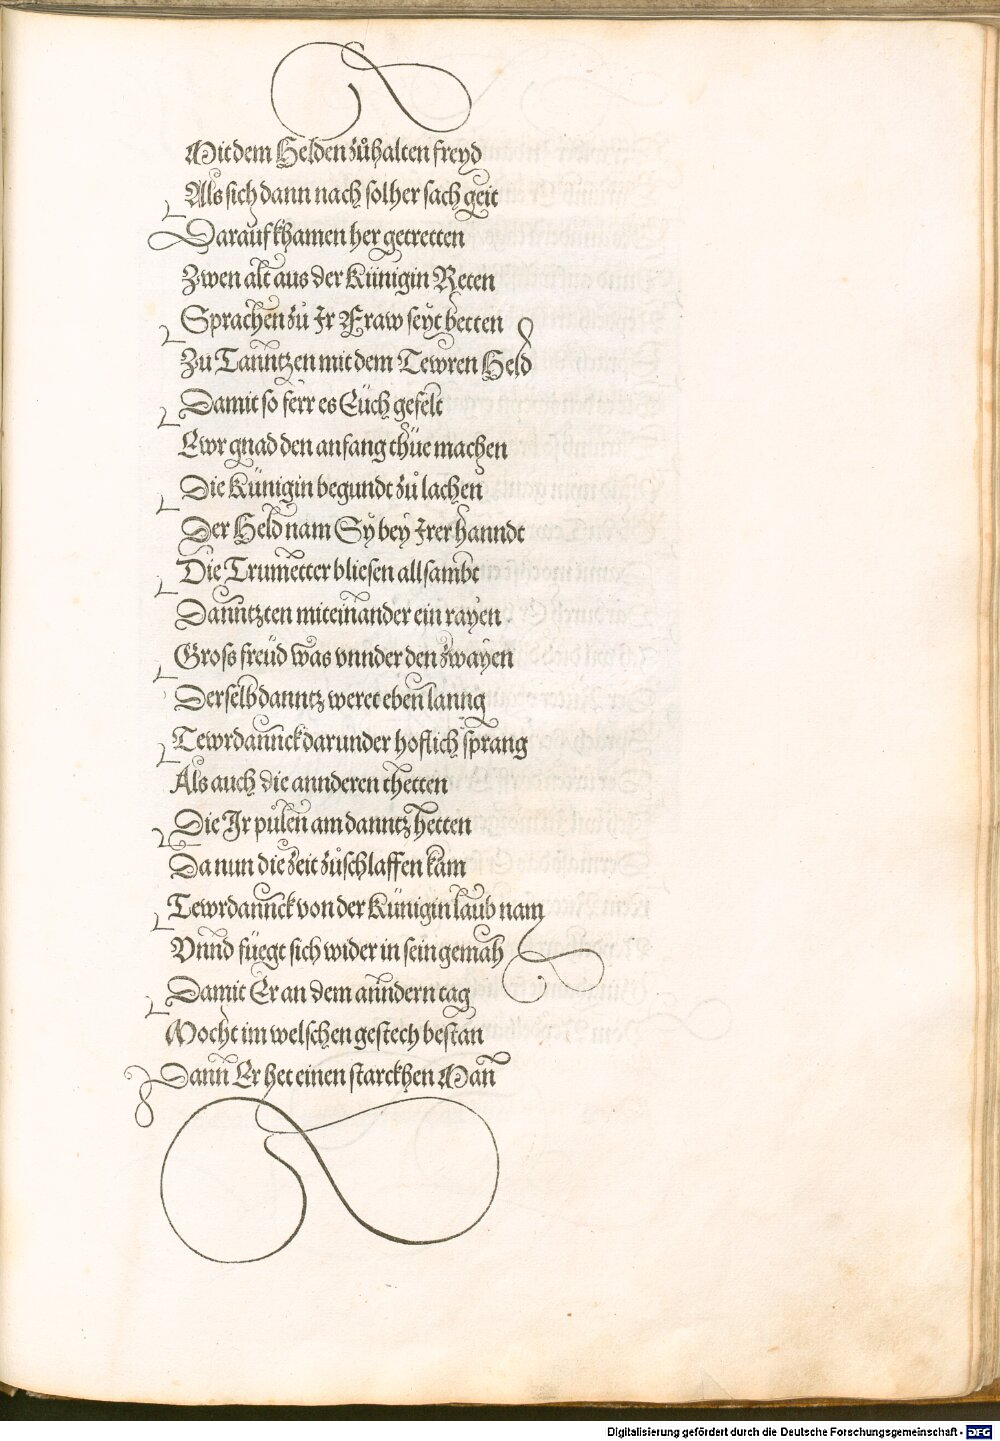 Mit dem Helden zůhalten freyd
Als sich dann nach solher sach geit
Darauf khamen her getretten
Zwen alt aus der Künigin Reten
Sprachen zů Jr Fraw seyt betten
Zu Tanntzen mit dem Tewren Held
Damit so ferr es Eüch gefelt
Ewr gnad den anfang thüe machen
Die Künigin begundt zů lachen
Der Held nam Sy bey Jrer hanndt
Die Trumetter bliesen allsambt
Danntzten miteinander ein rayen
Gross freüd was vnnder den zwayen
Derselb danntz weret eben lanng
Tewrdannck darunder hoflich sprang
Als auch die annderen thetten
Die Jr půlen am danntz hetten
Da nun die zeit zůschlaffen kam
Tewrdannck von der Künigin laub nam
Vnnd füegt sich wider in sein gemah
Damit Er an dem anndern tag
Mocht im welschen gestech bestan
Dann Er het einen starckhen Man
Digitalisierung gefördert durch die Deutsche Forschungsgemeinschaft - DFG